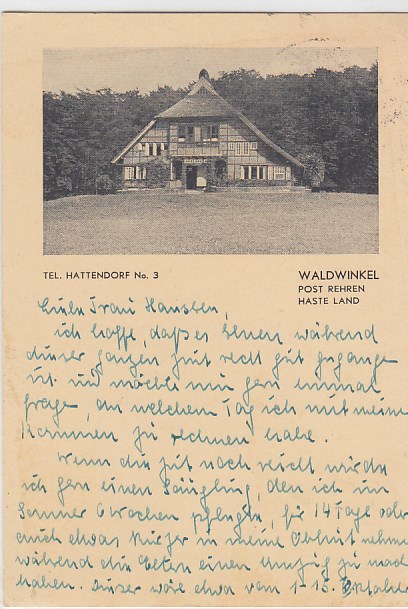 TEL. HATTENDORF No. 3
WALDWINKEL
POST REHREN
HASTE LAND
Liebe Frau Hansben,
ich hoffe, daß es Ihnen während
dieser ganzen Zeit recht gut gegange
ist und möchte nun gern einmal
frage, an welchem Tag ich mit meine
Kommen zu rechnen habe.
Wenn die Zeit noch reicht würde
ich gern einen Säugling, den ich im
Sommer 6 Wochen pflegte, für 14 Tage oder
auch etwas kürzer in meine Obhut nehme
während die Eltern einen Umzug zu mach
haben. Dieses wäre etwa vom 1-15.